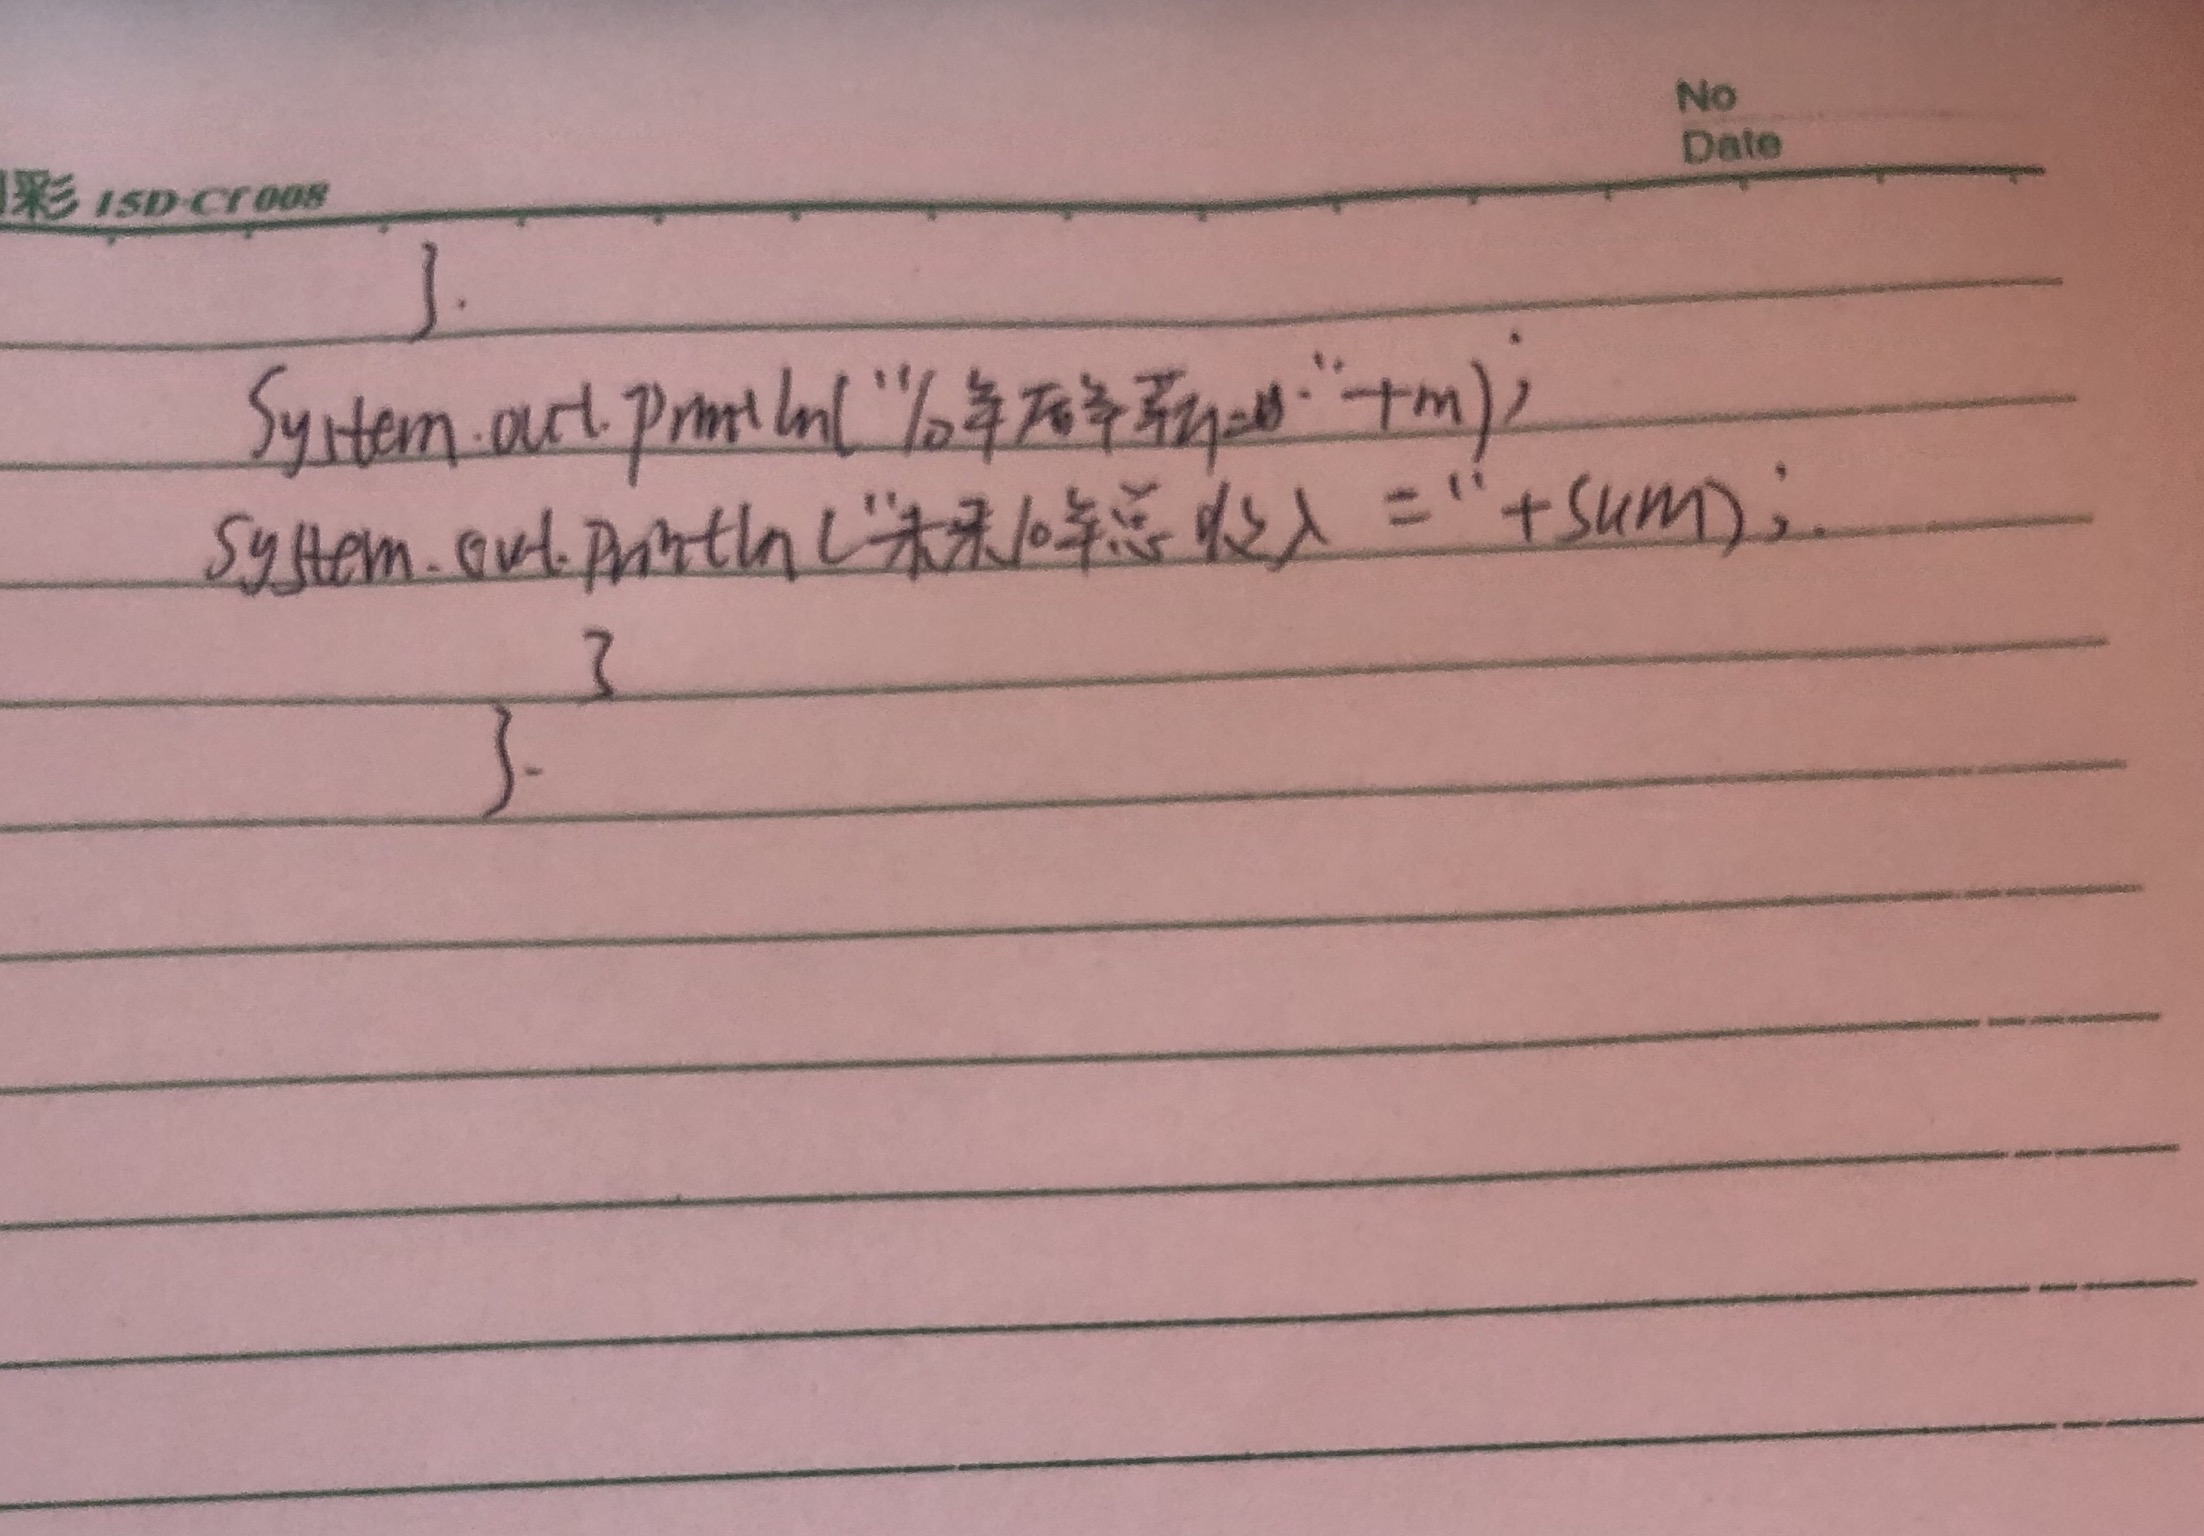 No
Date
彩 15D-CT008
}.
System.out.println("10年后年薪=" +m);
System.out.println("未来10年总收入 =" +sum);.
}
}.